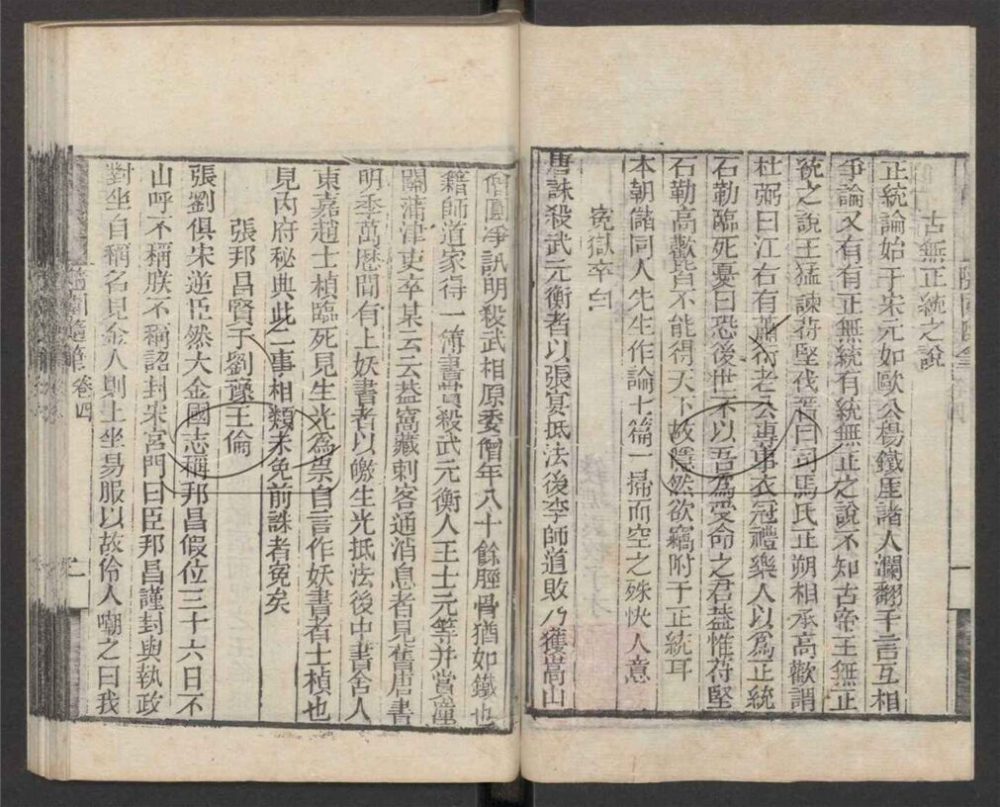 古無正統之說
正統論始于宋元如歐公楊鐵厓諸人瀾翻千言互相
爭論又有有正無統有統無正之說不知古帝王無正
統之說王猛諫苻堅伐晉曰司馬氏正朔相承高歡謂
杜弼曰江右有蕭衍老公專事衣冠禮樂人以爲正統
石勒臨死憂曰恐後世不以吾爲受命之君蓋惟苻堅
石勒高歡皆不能得天下故隱然欲竊附于正統耳
本朝儲同人先生作論七篇一掃而空之殊快人意
寃獄卒白
唐誅殺武元衡者以張宴抵法後李師道敗乃獲嵩山
僧圓凈訊明殺武相原委僧年八十餘脛骨猶如鐵也
籍師道家得一簿書賞殺武元衡人王士元等并賞潼
關蒲津吏卒某云云蓋窩藏刺客通消息者見舊唐書
明季萬歷間有上妖書者以皦生光抵法後中書舍人
東嘉趙士楨臨死見生光爲祟自言作妖書者士楨也
見內府秘典此二事相類未免前誅者寃矣
張邦昌賢于劉豫王倫
張劉俱宋逆臣然大金國志稱邦昌假位三十六日不
山呼不稱朕不稱詔封宋宮門曰臣邦昌謹封與執政
對坐自稱名見金人則上坐易服以故伶人嘲之曰我
隨園隨筆 卷四